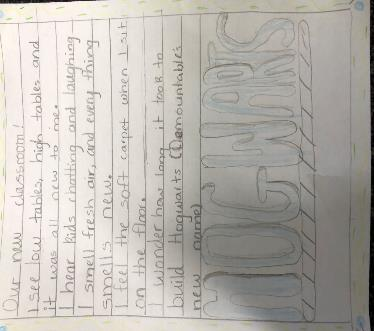 Our new classroom!
I see low tables, high tables and
it was all new to me.
I hear kids chatting and laughing
I smell fresh air and every thing
smells new.
I feel the soft carpet when I sit
on the floor.
I wonder how long it took to
build Hogwarts (Demountable's
new name)
HOGWARTS